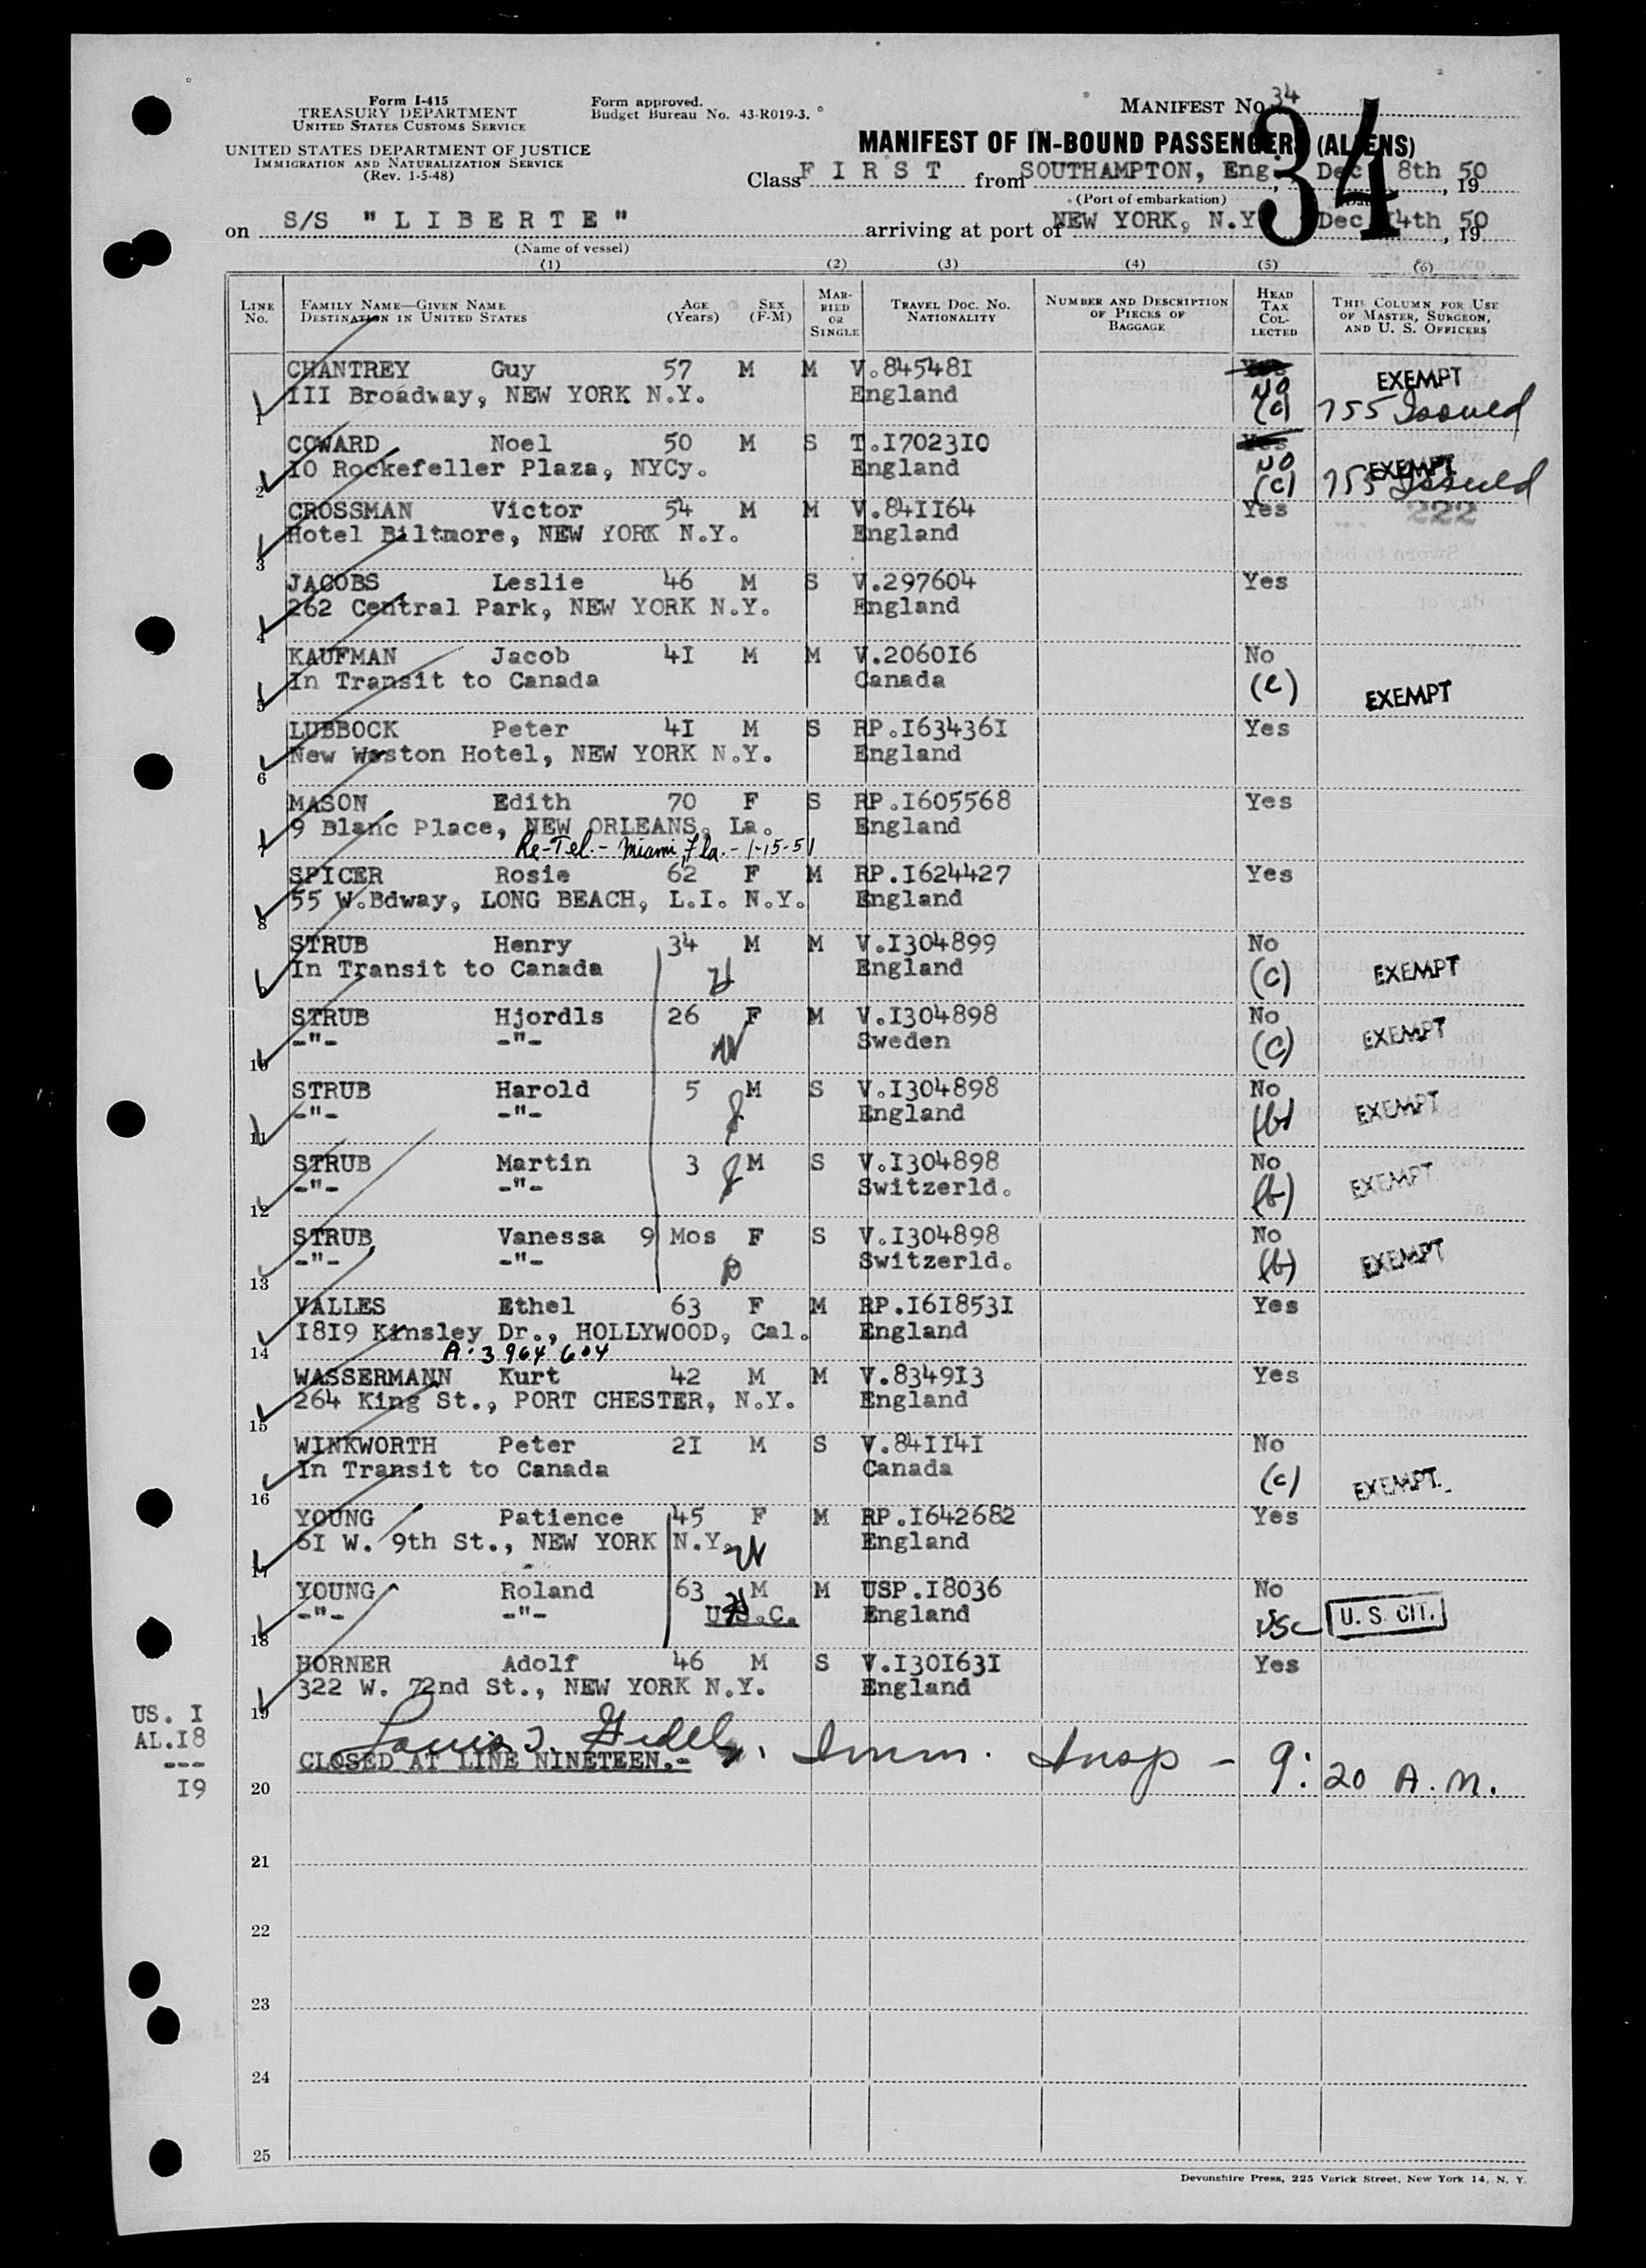 Form I-415
TREASURY DEPARTMENT
UNITED STATES CUSTOMS SERVICE
UNITED STATES DEPARTMENT OF JUSTICE
IMMIGRATION AND NATURALIZATION SERVICE
(Rev. 1-5-48)
Form approved.
Budget Bureau No. 43-R019-3.
MANIFEST No. 34
34
MANIFEST OF IN-BOUND PASSENGERS (ALIENS)
Class F I R S T from SOUTHAMPTON, Eng., Dec 8th, 19 50
(Port of embarkation) (Date)
on S/S "L I B E R T E" arriving at port of NEW YORK, N.Y. Dec 14th, 19 50
(Name of vessel)
(1) (2) (3) (4) (5) (6)
LINE No. FAMILY NAME—GIVEN NAME DESTINATION IN UNITED STATES AGE (Years) SEX (F-M) MARRIED OR SINGLE TRAVEL DOC. NO. NATIONALITY NUMBER AND DESCRIPTION OF PIECES OF BAGGAGE HEAD TAX COLLECTED THIS COLUMN FOR USE OF MASTER, SURGEON, AND U. S. OFFICERS
CHANTREY Guy 57 M M V.845481 Yes EXEMPT
1 III Broadway, NEW YORK N.Y. England NO (c) 755 Issued
COWARD Noel 50 M S T.I7023I0 Yes EXEMPT
2 IO Rockefeller Plaza, NYCy. England NO (c) 755 Issued
CROSSMAN Victor 54 M M V.84II64 Yes 222
3 Hotel Biltmore, NEW YORK N.Y. England
JACOBS Leslie 46 M S V.297604 Yes
4 262 Central Park, NEW YORK N.Y. England
KAUFMAN Jacob 4I M M V.2060I6 No
5 In Transit to Canada Canada (c) EXEMPT
LUBBOCK Peter 4I M S RP.I63436I Yes
6 New Weston Hotel, NEW YORK N.Y. England
MASON Edith 70 F S RP.I605568 Yes
7 9 Blanc Place, NEW ORLEANS, La. England
Re-Tel.- Miami, Fla. - 1-15-51
SPICER Rosie 62 F M RP.I624427 Yes
8 55 W.Bdway, LONG BEACH, L.I. N.Y. England
STRUB Henry 34 M M V.I304899 No
9 In Transit to Canada England (c) EXEMPT
STRUB Hjordls 26 F M V.I304898 No
10 -"- -"- Sweden (c) EXEMPT
STRUB Harold 5 M S V.I304898 No
11 -"- -"- England (b) EXEMPT
STRUB Martin 3 M S V.I304898 No
12 -"- -"- Switzerld. (b) EXEMPT
STRUB Vanessa 9 Mos F S V.I304898 No
13 -"- -"- Switzerld. (b) EXEMPT
VALLES Ethel 63 F M RP.I6I853I Yes
14 I8I9 Kinsley Dr., HOLLYWOOD, Cal. England
A-3964604
WASSERMANN Kurt 42 M M V.8349I3 Yes
15 264 King St., PORT CHESTER, N.Y. England
WINKWORTH Peter 2I M S V.84II4I No
16 In Transit to Canada Canada (c) EXEMPT.
YOUNG Patience 45 F M RP.I642682 Yes
17 6I W. 9th St., NEW YORK N.Y. England
YOUNG Roland 63 M M USP.I8036 No
18 -"- -"- U.S.C. England USC U. S. CIT.
HORNER Adolf 46 M S V.I30I63I Yes
19 322 W. 72nd St., NEW YORK N.Y. England
US. I
AL.I8
---
I9
Imm. Insp - 9:20 A.M.
20 CLOSED AT LINE NINETEEN.-
21
22
23
24
25
Devonshire Press, 225 Varick Street, New York 14, N. Y.